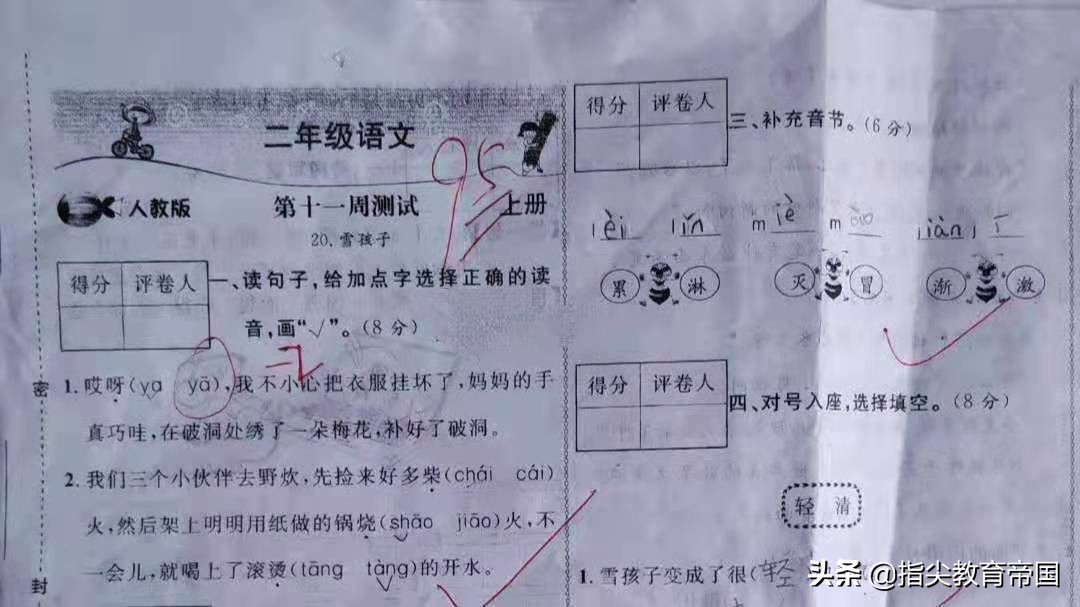 二年级语文
95
人教版 第十一周测试 上册
20.雪孩子
得分 评卷人
一、读句子,给加点字选择正确的读
音,画“√”。(8分)
-2
1.哎呀(ya yā),我不小心把衣服挂坏了,妈妈的手
真巧哇,在破洞处绣了一朵梅花,补好了破洞。
2.我们三个小伙伴去野炊,先捡来好多柴(chái cái)
火,然后架上明明用纸做的锅烧(shāo jiāo)火,不
一会儿,就喝上了滚烫(tāng tàng)的开水。
密
封
得分 评卷人
三、补充音节。(6分)
lèi lín miè mào jiàn jī
累 淋 灭 冒 渐 激
得分 评卷人
四、对号入座,选择填空。(8分)
轻 清
1.雪孩子变成了很(轻
头条 @指尖教育帝国